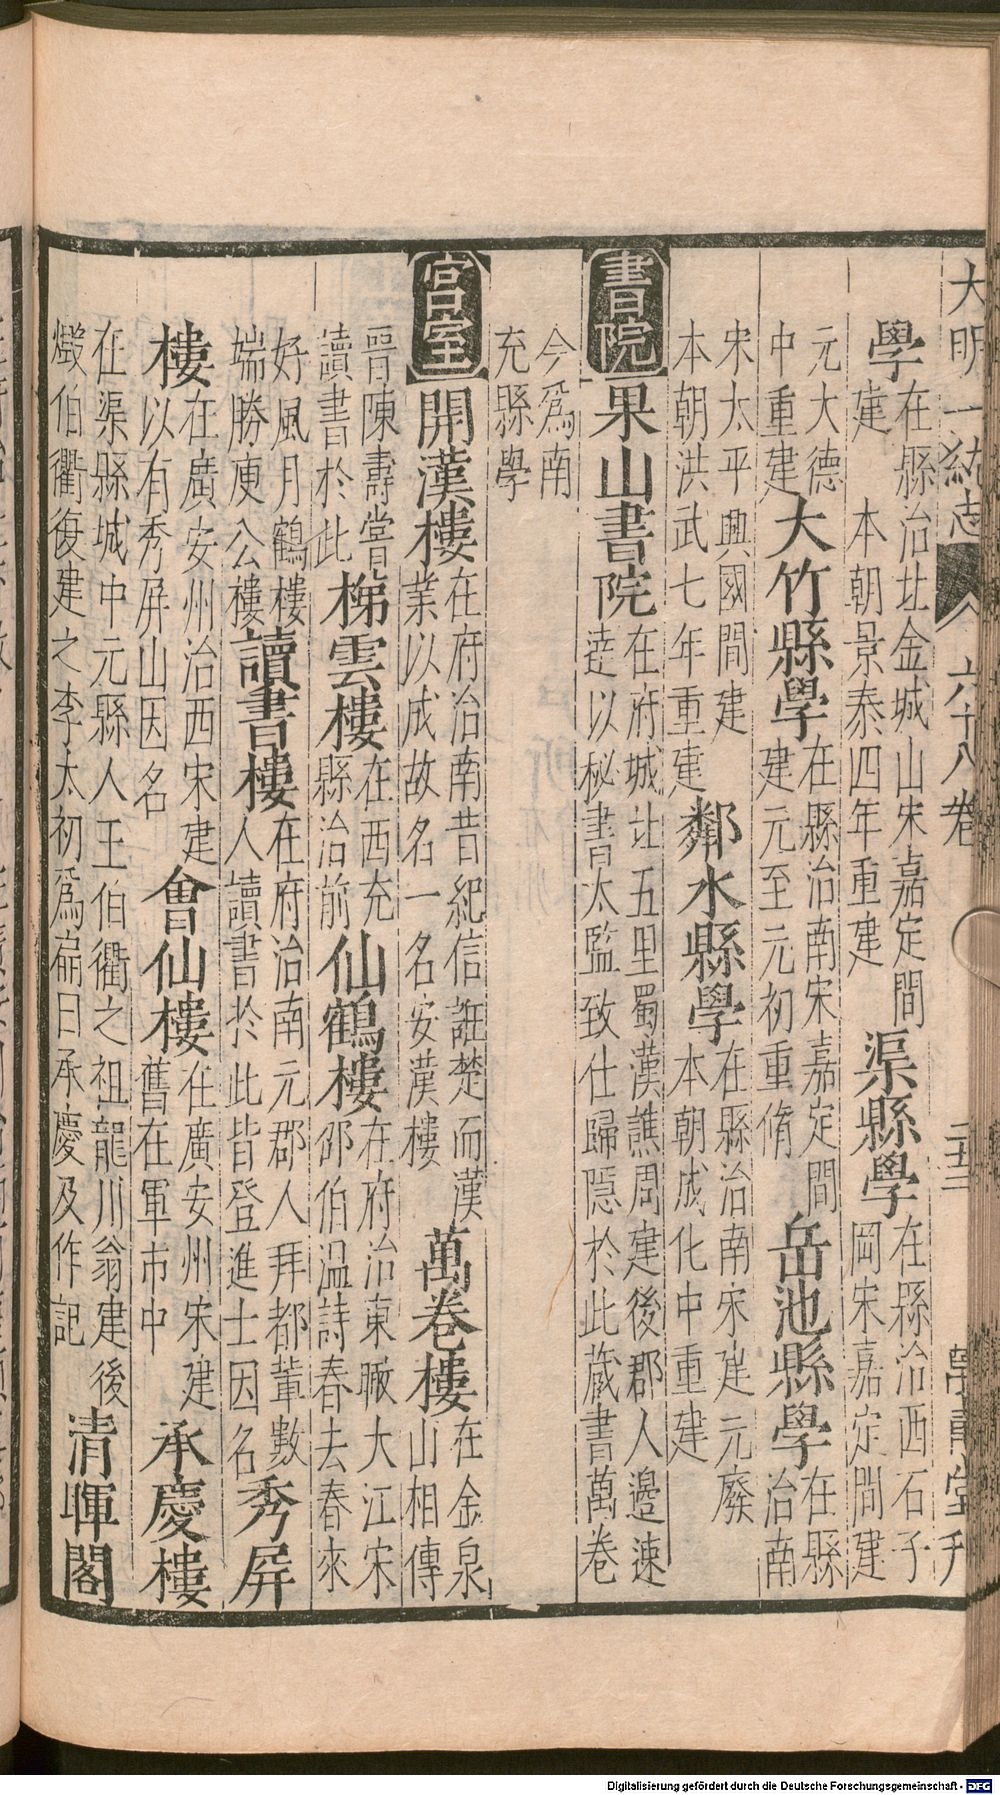 大明一統志 六十八卷 二十三 萬壽堂刊
學在縣治北金城山宋嘉定間建 本朝景泰四年重建渠縣學在縣治西石子岡宋嘉定間建
元大德中重建大竹縣學在縣治南宋嘉定間建元至元初重脩岳池縣學在縣治南
宋太平興國間建本朝洪武七年重建鄰水縣學在縣治南宋建元廢本朝成化中重建
書院 果山書院在府城北五里蜀漢譙周建後郡人邊速達以秘書太監致仕歸隱於此蔵書萬卷
今爲南充縣學
宮室 開漢樓在府治南昔紀信誑楚而漢業以成故名一名安漢樓萬卷樓在金泉山相傳
晉陳壽嘗讀書於此梯雲樓在西充縣治前仙鶴樓在府治東瞰大江宋邵伯温詩春去春來
好風月鶴樓端勝庾公樓讀書樓在府治南元郡人拜都輩數人讀書於此皆登進士因名秀屏
樓在廣安州治西宋建以有秀屏山因名會仙樓在廣安州宋建舊在軍市中承慶樓
在渠縣城中元縣人王伯衢之祖龍川翁建後燬伯衢復建之李太初爲扁曰承慶及作記清暉閣
Digitalisierung gefördert durch die Deutsche Forschungsgemeinschaft - DFG